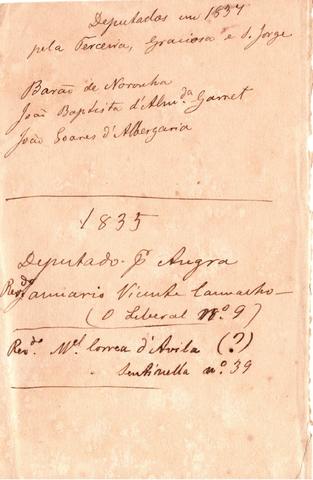 Deputados em 1834
pela Terceira, Graciosa e S. Jorge
Barão de Noronha
João Baptista d'Almda Garret
João Soares d'Albergaria
1835
Deputado pr Angra
Revdo Januario Vicente Camacho —
(O Liberal nº 9)
Revdo Mel Correa d'Avila (?)
Sentinella nº 39